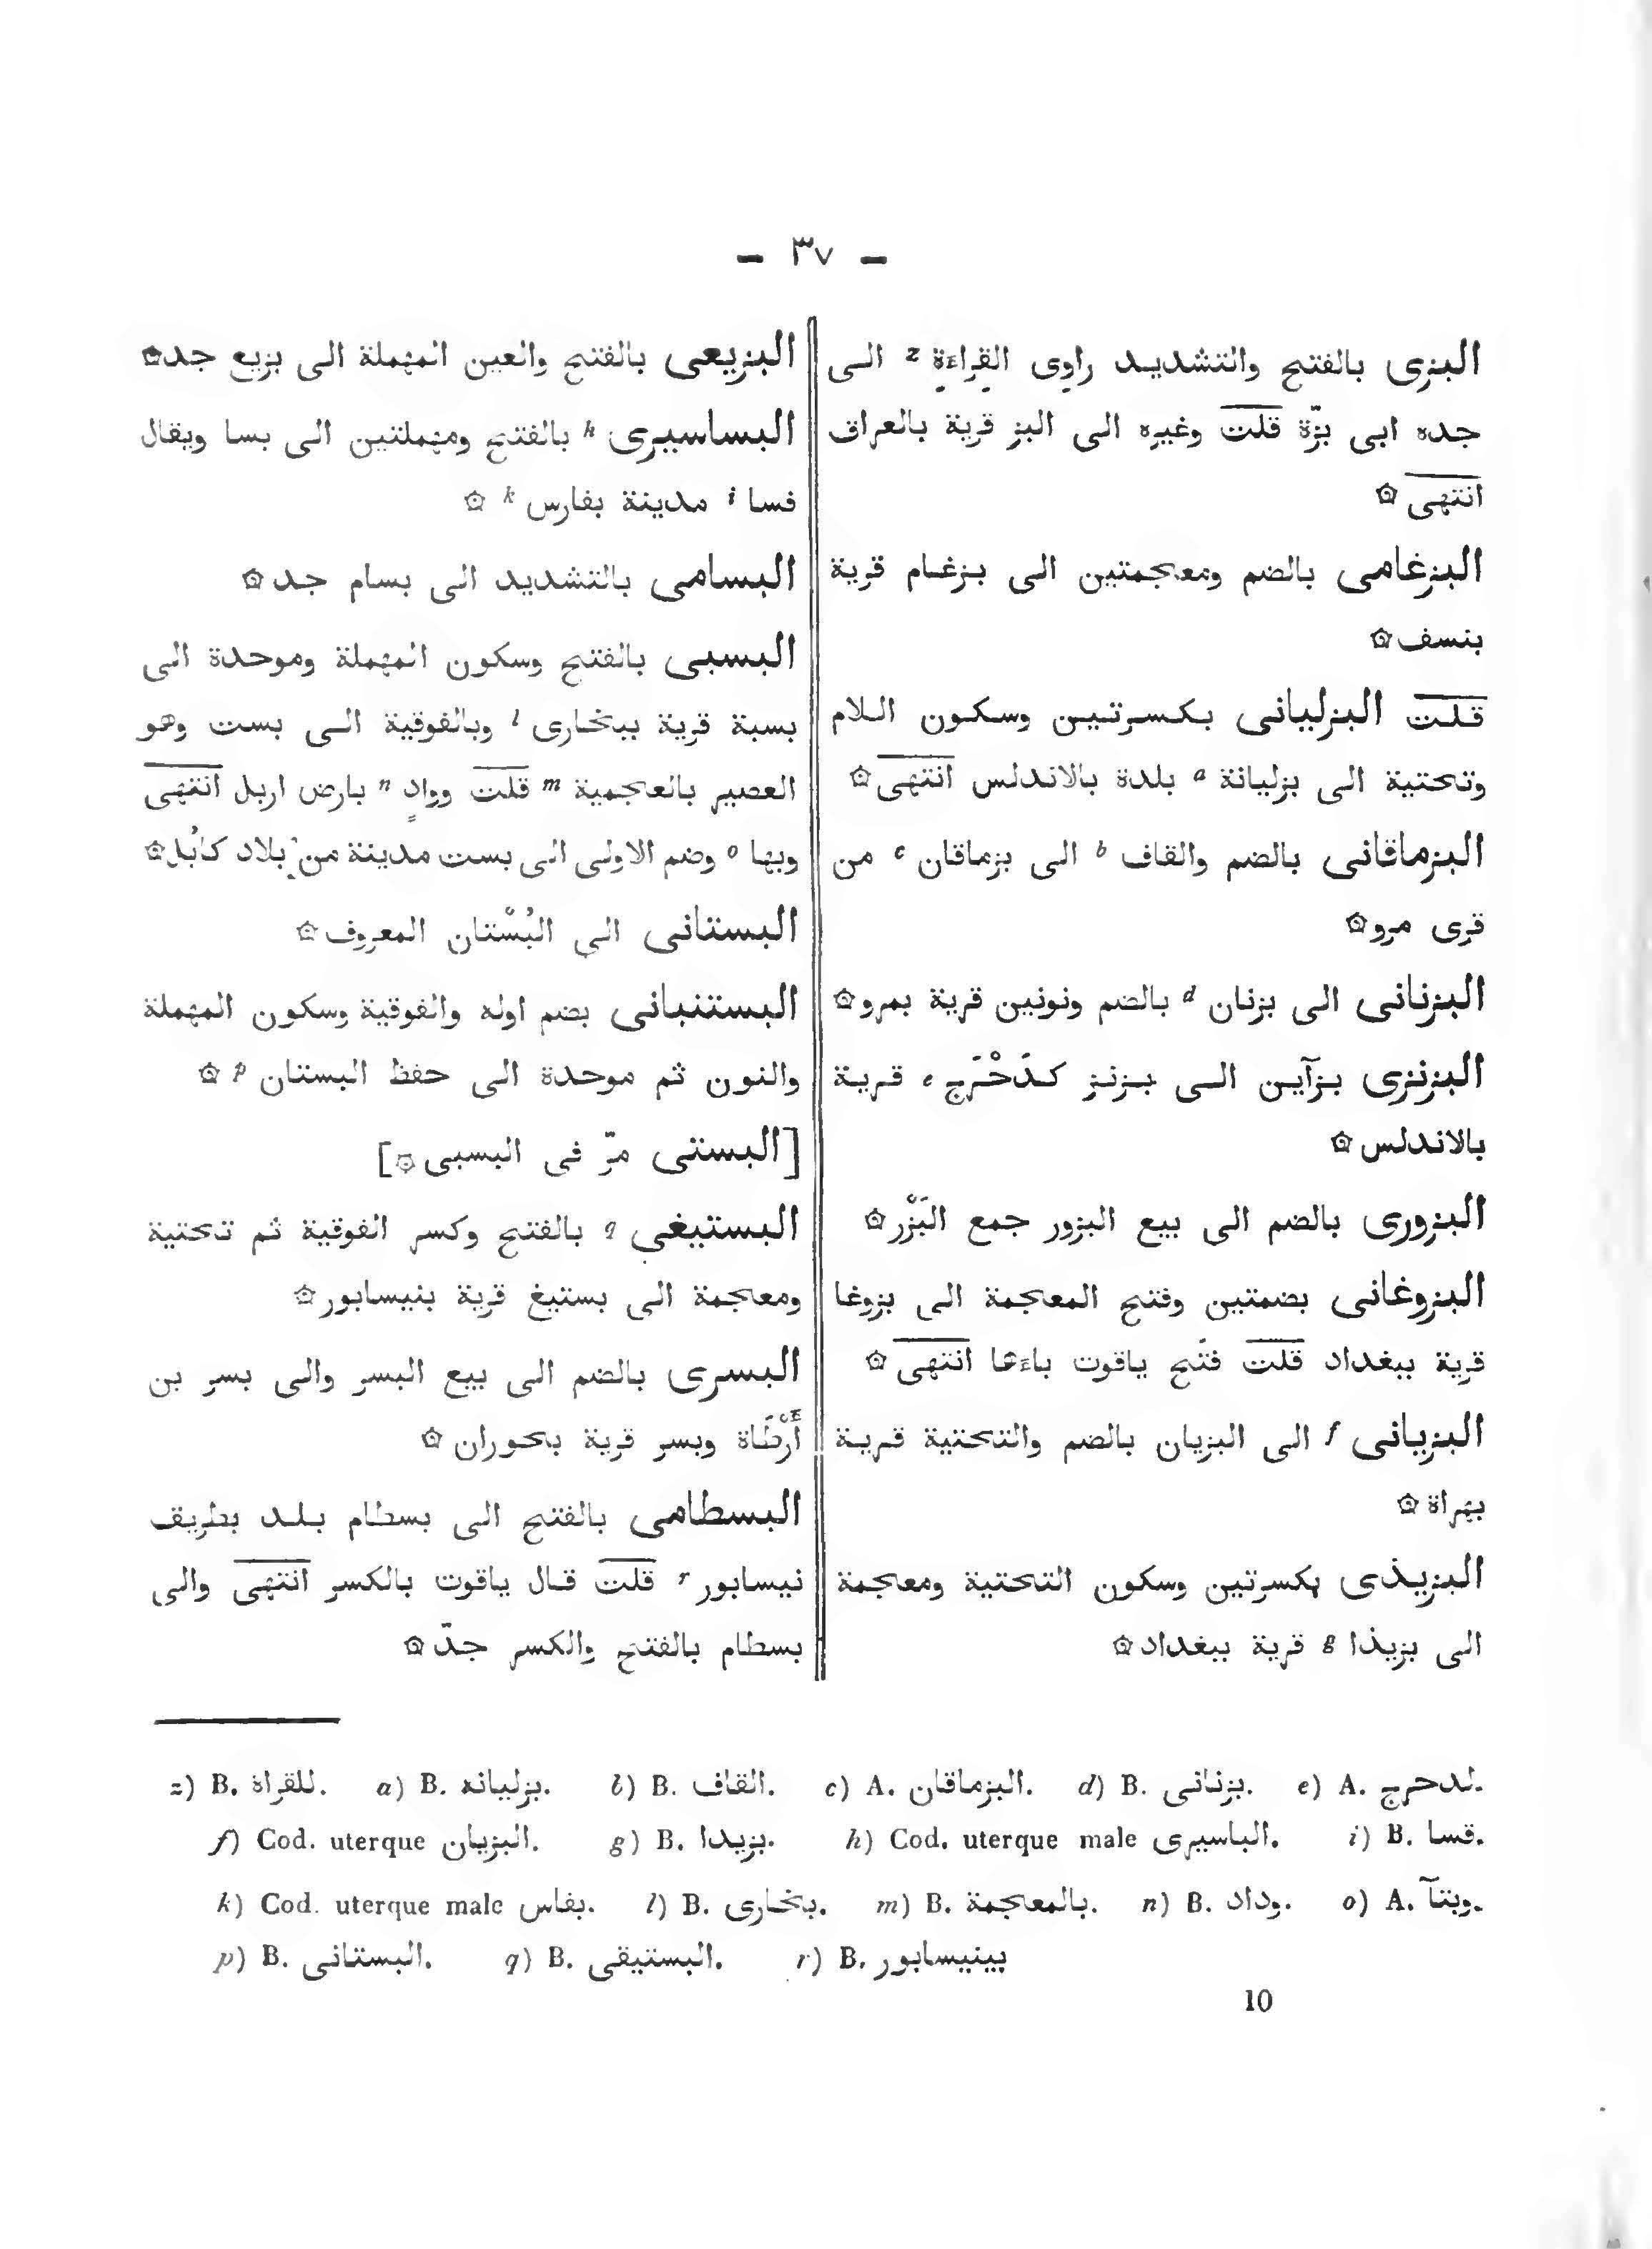 — ٣٧ —
البزى بالفتح والتشديد راوى القراءة z الى
جده ابى بزّة قلت وغيره الى البز قرية بالعراق
انتهى ۞
البزغامى بالضم ومعجمتين الى بزغام قرية
بنسف ۞
قلت البزليانى بكسرتين وسكون اللام
وتحتية الى بزليانة a بلدة بالاندلس انتهى ۞
البزماقانى بالضم والقاف b الى بزماقان c من
قرى مرو ۞
البزنانى الى بزنان d بالضم ونونين قرية بمرو ۞
البزنزى بزآين الى بزنز كدَحْرَج e قرية
بالاندلس ۞
البزورى بالضم الى بيع البزور جمع البَزْر ۞
البزوغانى بضمتين وفتح المعجمة الى بزوغا
قرية ببغداد قلت فتَح ياقوت باءها انتهى ۞
البزيانى f الى البزيان بالضم والتحتية قرية
بهراة ۞
البزيذى بكسرتين وسكون التحتية ومعجمة
الى بزيذا g قرية ببغداد ۞
البزيعى بالفتح والعين المهملة الى بزيع جد ۞
البساسيرى h بالفتح ومهملتين الى بسا ويقال
فسا i مدينة بفارس k ۞
البسامى بالتشديد الى بسام جد ۞
البسبى بالفتح وسكون المهملة وموحدة الى
بسبة قرية ببخارى l وبالفوقية الى بست وهو
العصير بالعجمية m قلت ووادٍ n بارض اربل انتهى
وبها o وضم الاولى الى بست مدينة من بلاد كابُل ۞
البستانى الى البُسْتان المعروف ۞
البستنبانى بضم اوله والفوقية وسكون المهملة
والنون ثم موحدة الى حفظ البستان p ۞
[البستى مرّ فى البسبى ۞]
البستيغى q بالفتح وكسر الفوقية ثم تحتية
ومعجمة الى بستيغ قرية بنيسابور ۞
البسرى بالضم الى بيع البسر والى بسر بن
أَرْطَاة وبسر قرية بحوران ۞
البسطامى بالفتح الى بسطام بلد بطريق
نيسابور r قلت قال ياقوت بالكسر انتهى والى
بسطام بالفتح والكسر جدّ ۞
z) B. للقراة. a) B. بزليانه. b) B. القاف. c) A. البزماقان. d) B. بزنانى. e) A. لدحرج.
f) Cod. uterque البزيان. g) B. بزيدا. h) Cod. uterque male الباسيرى. i) B. قسا.
k) Cod. uterque male بفاس. l) B. بخارى. m) B. بالمعجمة. n) B. وداد. o) A. وبتآ.
p) B. البستانى. q) B. البستيقى. r) B. بينيسابور
10